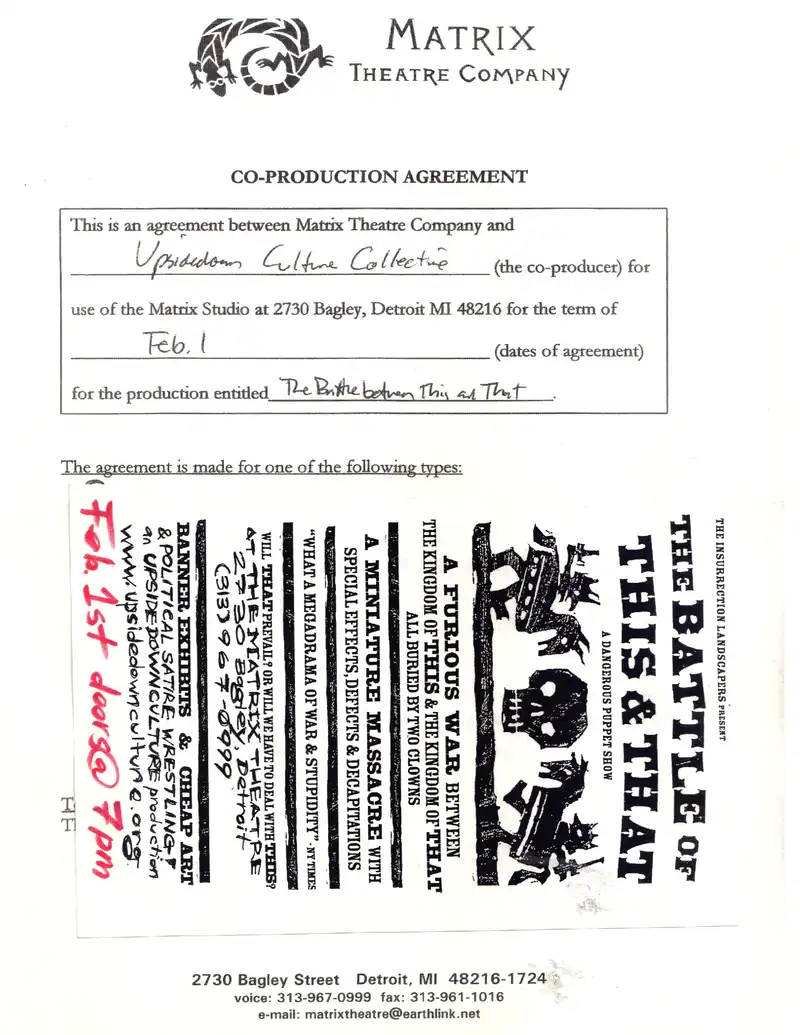 MATRIX
THEATRE COMPANY
CO-PRODUCTION AGREEMENT
This is an agreement between Matrix Theatre Company and
Upsidedown Culture Collective (the co-producer) for
use of the Matrix Studio at 2730 Bagley, Detroit MI 48216 for the term of
Feb. 1 (dates of agreement)
for the production entitled The Battle between This and That.
The agreement is made for one of the following types:
THE INSURRECTION LANDSCAPERS PRESENT
THE BATTLE OF
THIS & THAT
A DANGEROUS PUPPET SHOW
A FURIOUS WAR BETWEEN
THE KINGDOM OF THIS & THE KINGDOM OF THAT
ALL BURIED BY TWO CLOWNS
A MINIATURE MASSACRE WITH
SPECIAL EFFECTS, DEFECTS & DECAPITATIONS
"WHAT A MEGADRAMA OF WAR & STUPIDITY" - NY TIMES
WILL THAT PREVAIL? OR WILL WE HAVE TO DEAL WITH THIS?
AT THE MATRIX THEATRE
2730 Bagley, Detroit
(313) 967-0999
BANNER EXHIBITS & CHEAP ART
& POLITICAL SATIRE, WRESTLING!
an UPSIDEDOWNCULTURE production
www.upsidedownculture.org
Feb. 1st doors@ 7pm
2730 Bagley Street Detroit, MI 48216-1724
voice: 313-967-0999 fax: 313-961-1016
e-mail: matrixtheatre@earthlink.net